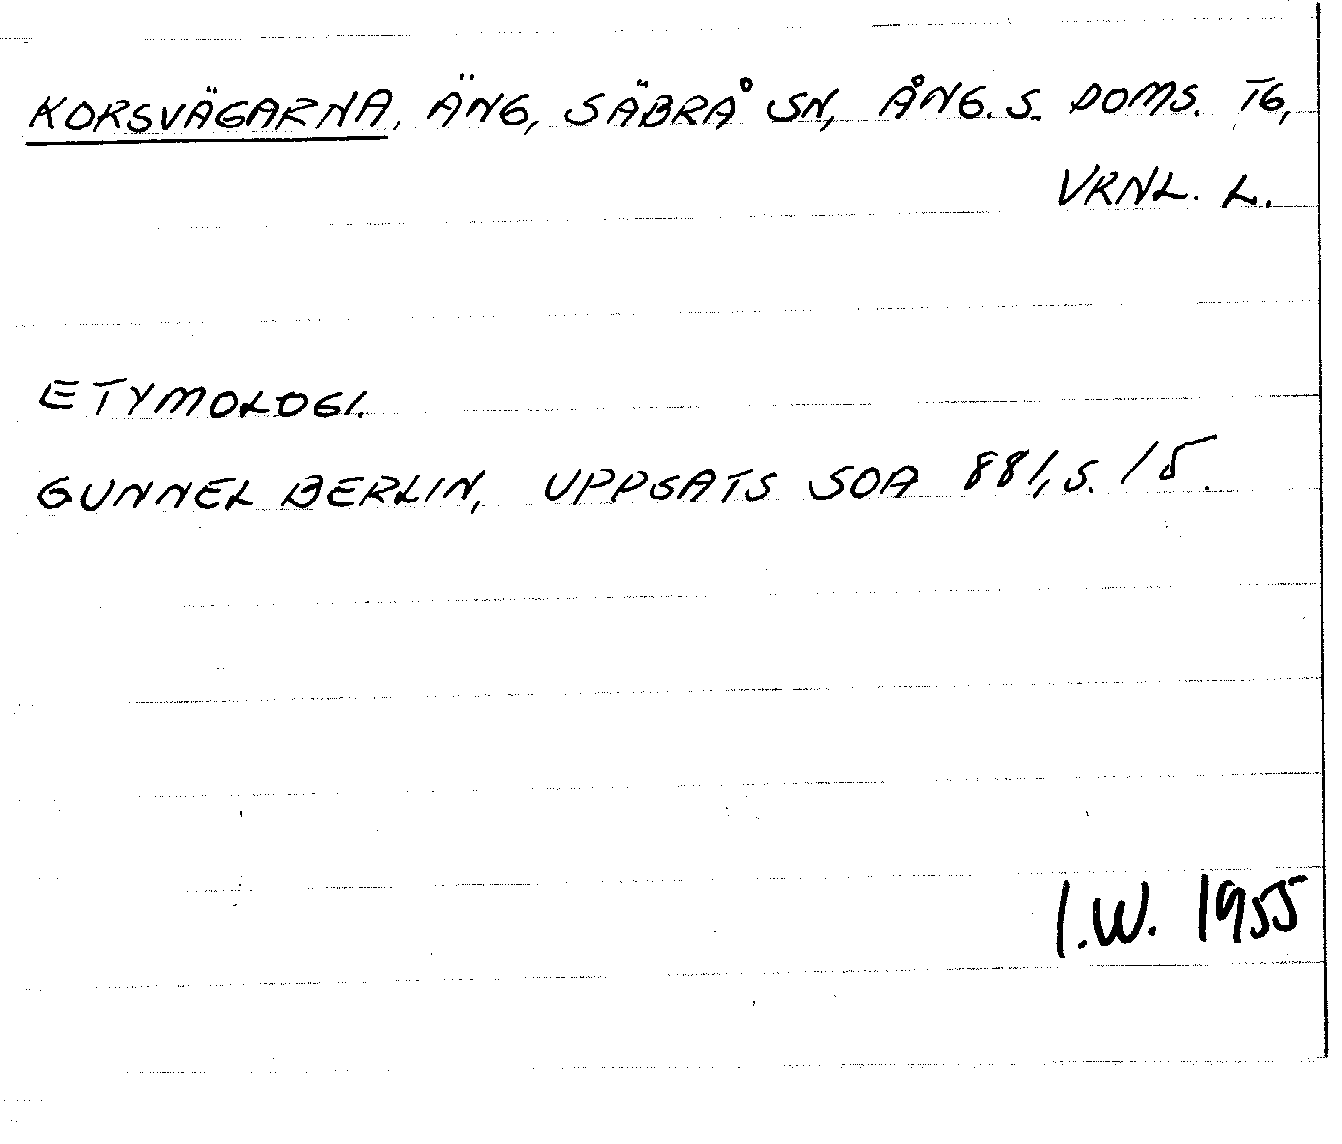 KORSVÄGARNA, ÄNG, SÄBRÅ SN, ÅNG. S. DOMS. TG,
VRNL. L.
ETYMOLOGI.
GUNNEL BERLIN, UPPSATS SOA 881, S. 15.
I.W. 1955